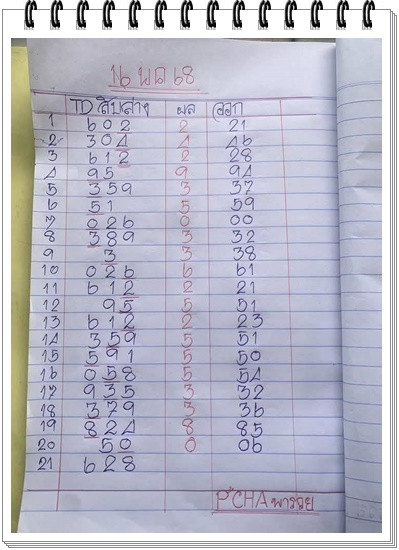 16 พค 68
TD สิบล่าง ผล ออก
1 602 2 21
2 304 4 46
3 612 2 28
4 95 9 94
5 359 3 37
6 51 5 59
7 026 0 00
8 389 3 32
9 3 3 38
10 026 6 61
11 612 2 21
12 95 5 51
13 612 2 23
14 359 5 51
15 591 5 50
16 058 5 54
17 935 3 32
18 379 3 36
19 824 8 85
20 50 0 06
21 628
P"CHA พารวย